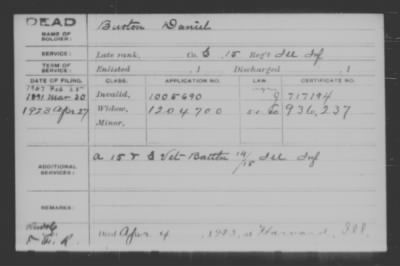 DEAD
NAME OF SOLDIER:
Burton Daniel
SERVICE:
Late rank, Co. G, 15 Reg't Ill Inf
TERM OF SERVICE:
Enlisted , 1 Discharged , 1
DATE OF FILING. CLASS. APPLICATION NO. LAW. CERTIFICATE NO.
1907 Feb 25
1891 Mar 20 Invalid, 1005690 717194
1923 Apr 27 Widow, 1204700 936,237
Minor,
ADDITIONAL SERVICES:
a 15 & G Vet. Battln 14/15 Ill Inf
REMARKS:
Died Apr. 4, 1923, at Harvard, Ill.